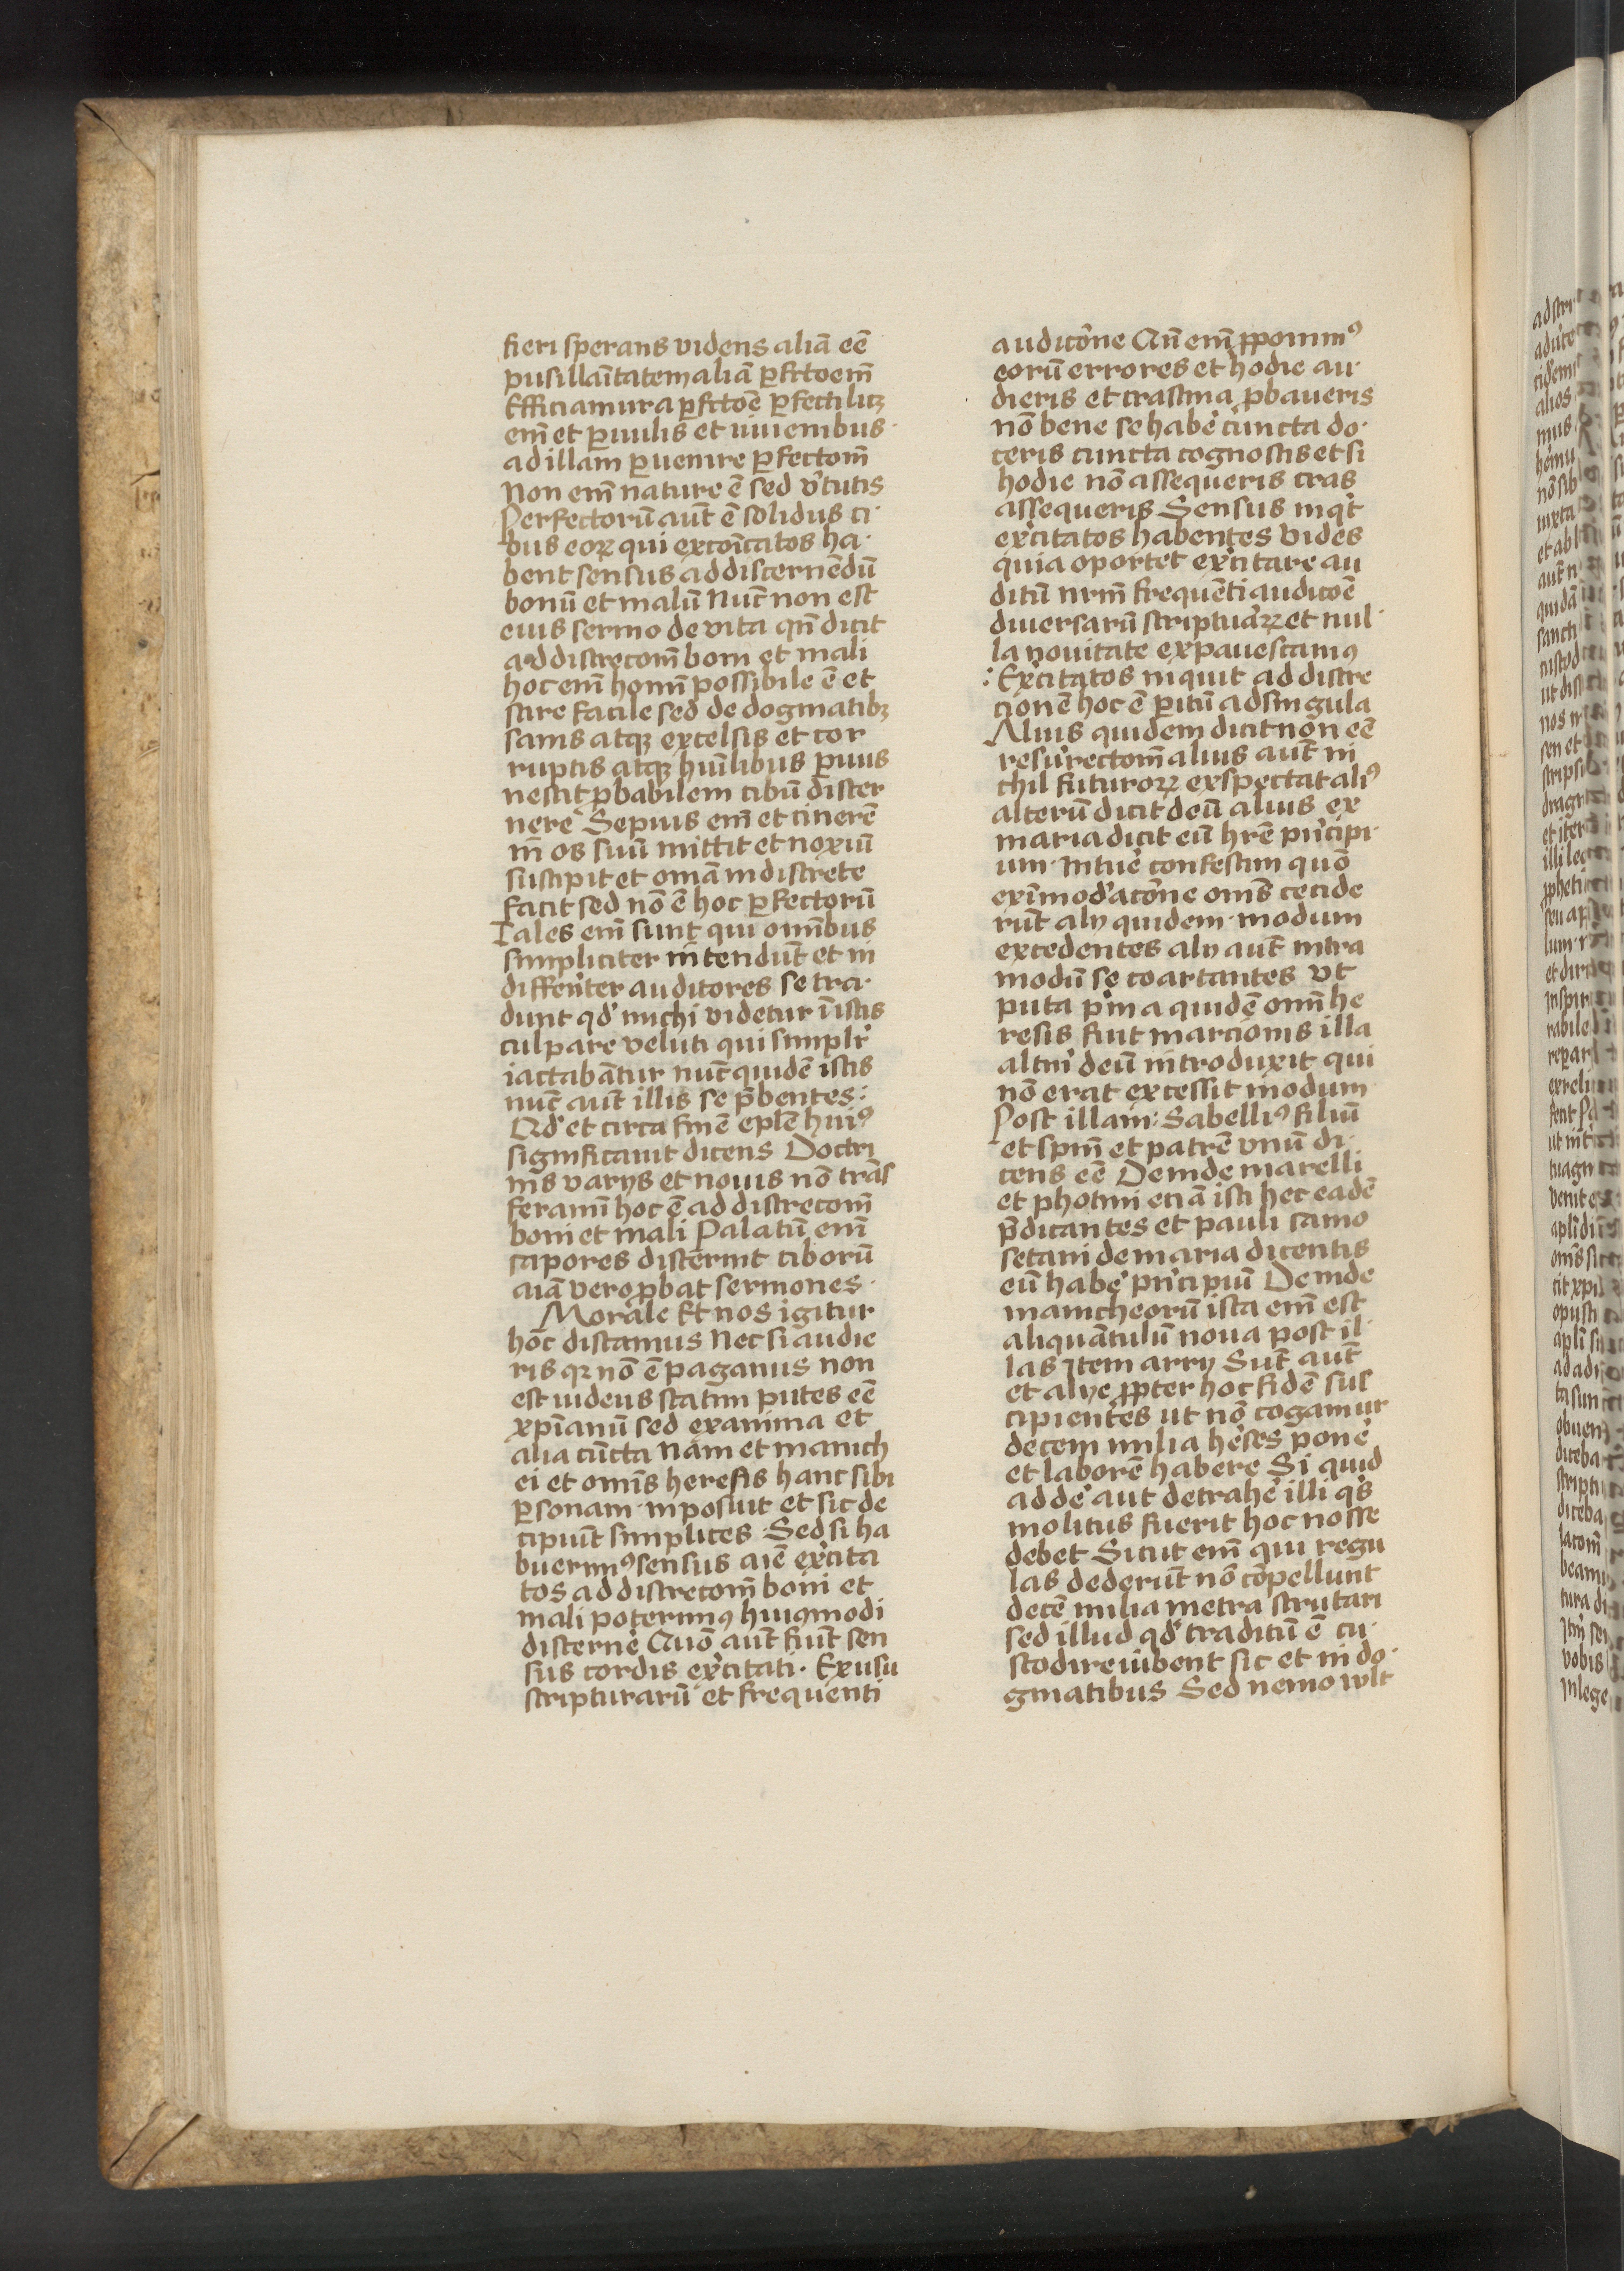 fieri sperans videns aliā eē
pusillaītatem aliā ꝑfctoem̄
Efficiamur a ꝑfctōe ꝑfecti licꝫ
em̄ et ꝑuulis et iuuenibus
ad illam ꝑuenire ꝑfectom̄
Non em̄ nature ē sed v̓tutis
Perfectorū aut̄ ē solidus ci
bus eoꝝ qui excoīcatos ha
bent sensus ad discernēdū
bonū et malū Nūc non est
eius sermo de vita qn̄ dicit
ad discrecom̄ boni et mali
hoc em̄ homī possibile ē et
scire facile sed de dogmatibꝫ
sanis atqꝫ excelsis et cor
ruptis atqꝫ huīlibus ꝑuus
nescit ꝓbabilem cibū discer
nere Sepius em̄ et cinerē
in̄ os suū mittit et noxiū
suscipit et omā indiscrete
facit sed nō ē hoc ꝑfectorū
Tales em̄ sunt qui omībus
simpliciter intendūt et in
differit̓er auditores se tra
dunt qd̓ michi videtur ī istis
culpare veluti qui simplr̓
iactabātur nūc quidē istis
nūc aut̄ illis se p̄bentes:
Qd̓ et circa finē epl̄e huiꝰ
significauit dicens Doctri
nis varys et nouis nō trās
feramī hoc ē ad discrecom̄
boni et mali Palatū em̄
sapores discernit ciborū
aīā vero ꝓbat sermones
Morale Et nos igitur
hoc discamus Nec si audie
ris qꝛ nō ē paganus non
est iudeus statim putes eē
xp̄ianū sed examina et
alia cūcta Nam et manich
ei et omīs heresis hanc sibi
ꝑsonam inposuit et sic de
cipiūt simplices Sed si ha
buerimꝰ sensus aīe exc̓ita
tos ad discrecom̄ boni et
mali poterimꝰ huiꝰmodi
discerne̓ Quō aut̄ fiūt sen
sus cordis exc̓itati. Ex usu
scripturarū et frequenti
audicōne Cū em̄ ꝓponimꝰ
eorū errores et hodie au
dieris et crastina ꝓbaueris
nō bene se habe̓ cuncta do
ceris cuncta cognoscis et si
hodie nō assequeris cras
assequeris Sensus inqt̓
exc̓itatos habentes Vides
quia oportet exc̓itare au
ditū nrm̄ frequēti audicōe
diuersarū scriptuaꝝ et nul
la nouitate expauescamꝰ
: Exc̓itatos inquit ad discre
cionē hoc ē ꝑitū ad singula
Alius quidem dicit non eē
resurrectom̄ alius aut̄ ni
chil futuroꝝ exspectat aliꝰ
alterū dicit deū alius ex
maria dicit eū hr̄e prīcipi
um Intue̓ confestim quō
ex īmod̓acōne oms̄ cecide
rūt alij quidem modum
excedentes alij aut̄ intra
modū se coartantes Vt
puta p̓ma quidē omī he
resis fuit marcionis illa
altm̓ deū introduxit qui
nō erat excessit modum
Post illam: Sabelliꝰ filiū
et spm̄ et patrē vnū di
cens eē Deinde marelli
et photini eciā isti hec eadē
p̄dicantes et pauli samo
setani de maria dicentis
eū habe̓ prīcipiū Deinde
manicheorū ista em̄ est
aliquātulū noua post il
las Item arry Sūt aut̄
et alye ꝓpter hoc fidē sus
cipientes ut nō cogamur
decem milia he̓ses pone̓
et laborē habere Si quid
adde̓ aut detrahe̓ illi qs̓
molitus fuerit hoc nosse
debet Sicut em̄ qui regu
las dederūt nō cōpellunt
decē milia metra scrutari
sed illud qd̓ traditū ē cu
stodire iubent sic et in do
gmatibus Sed nemo wlt